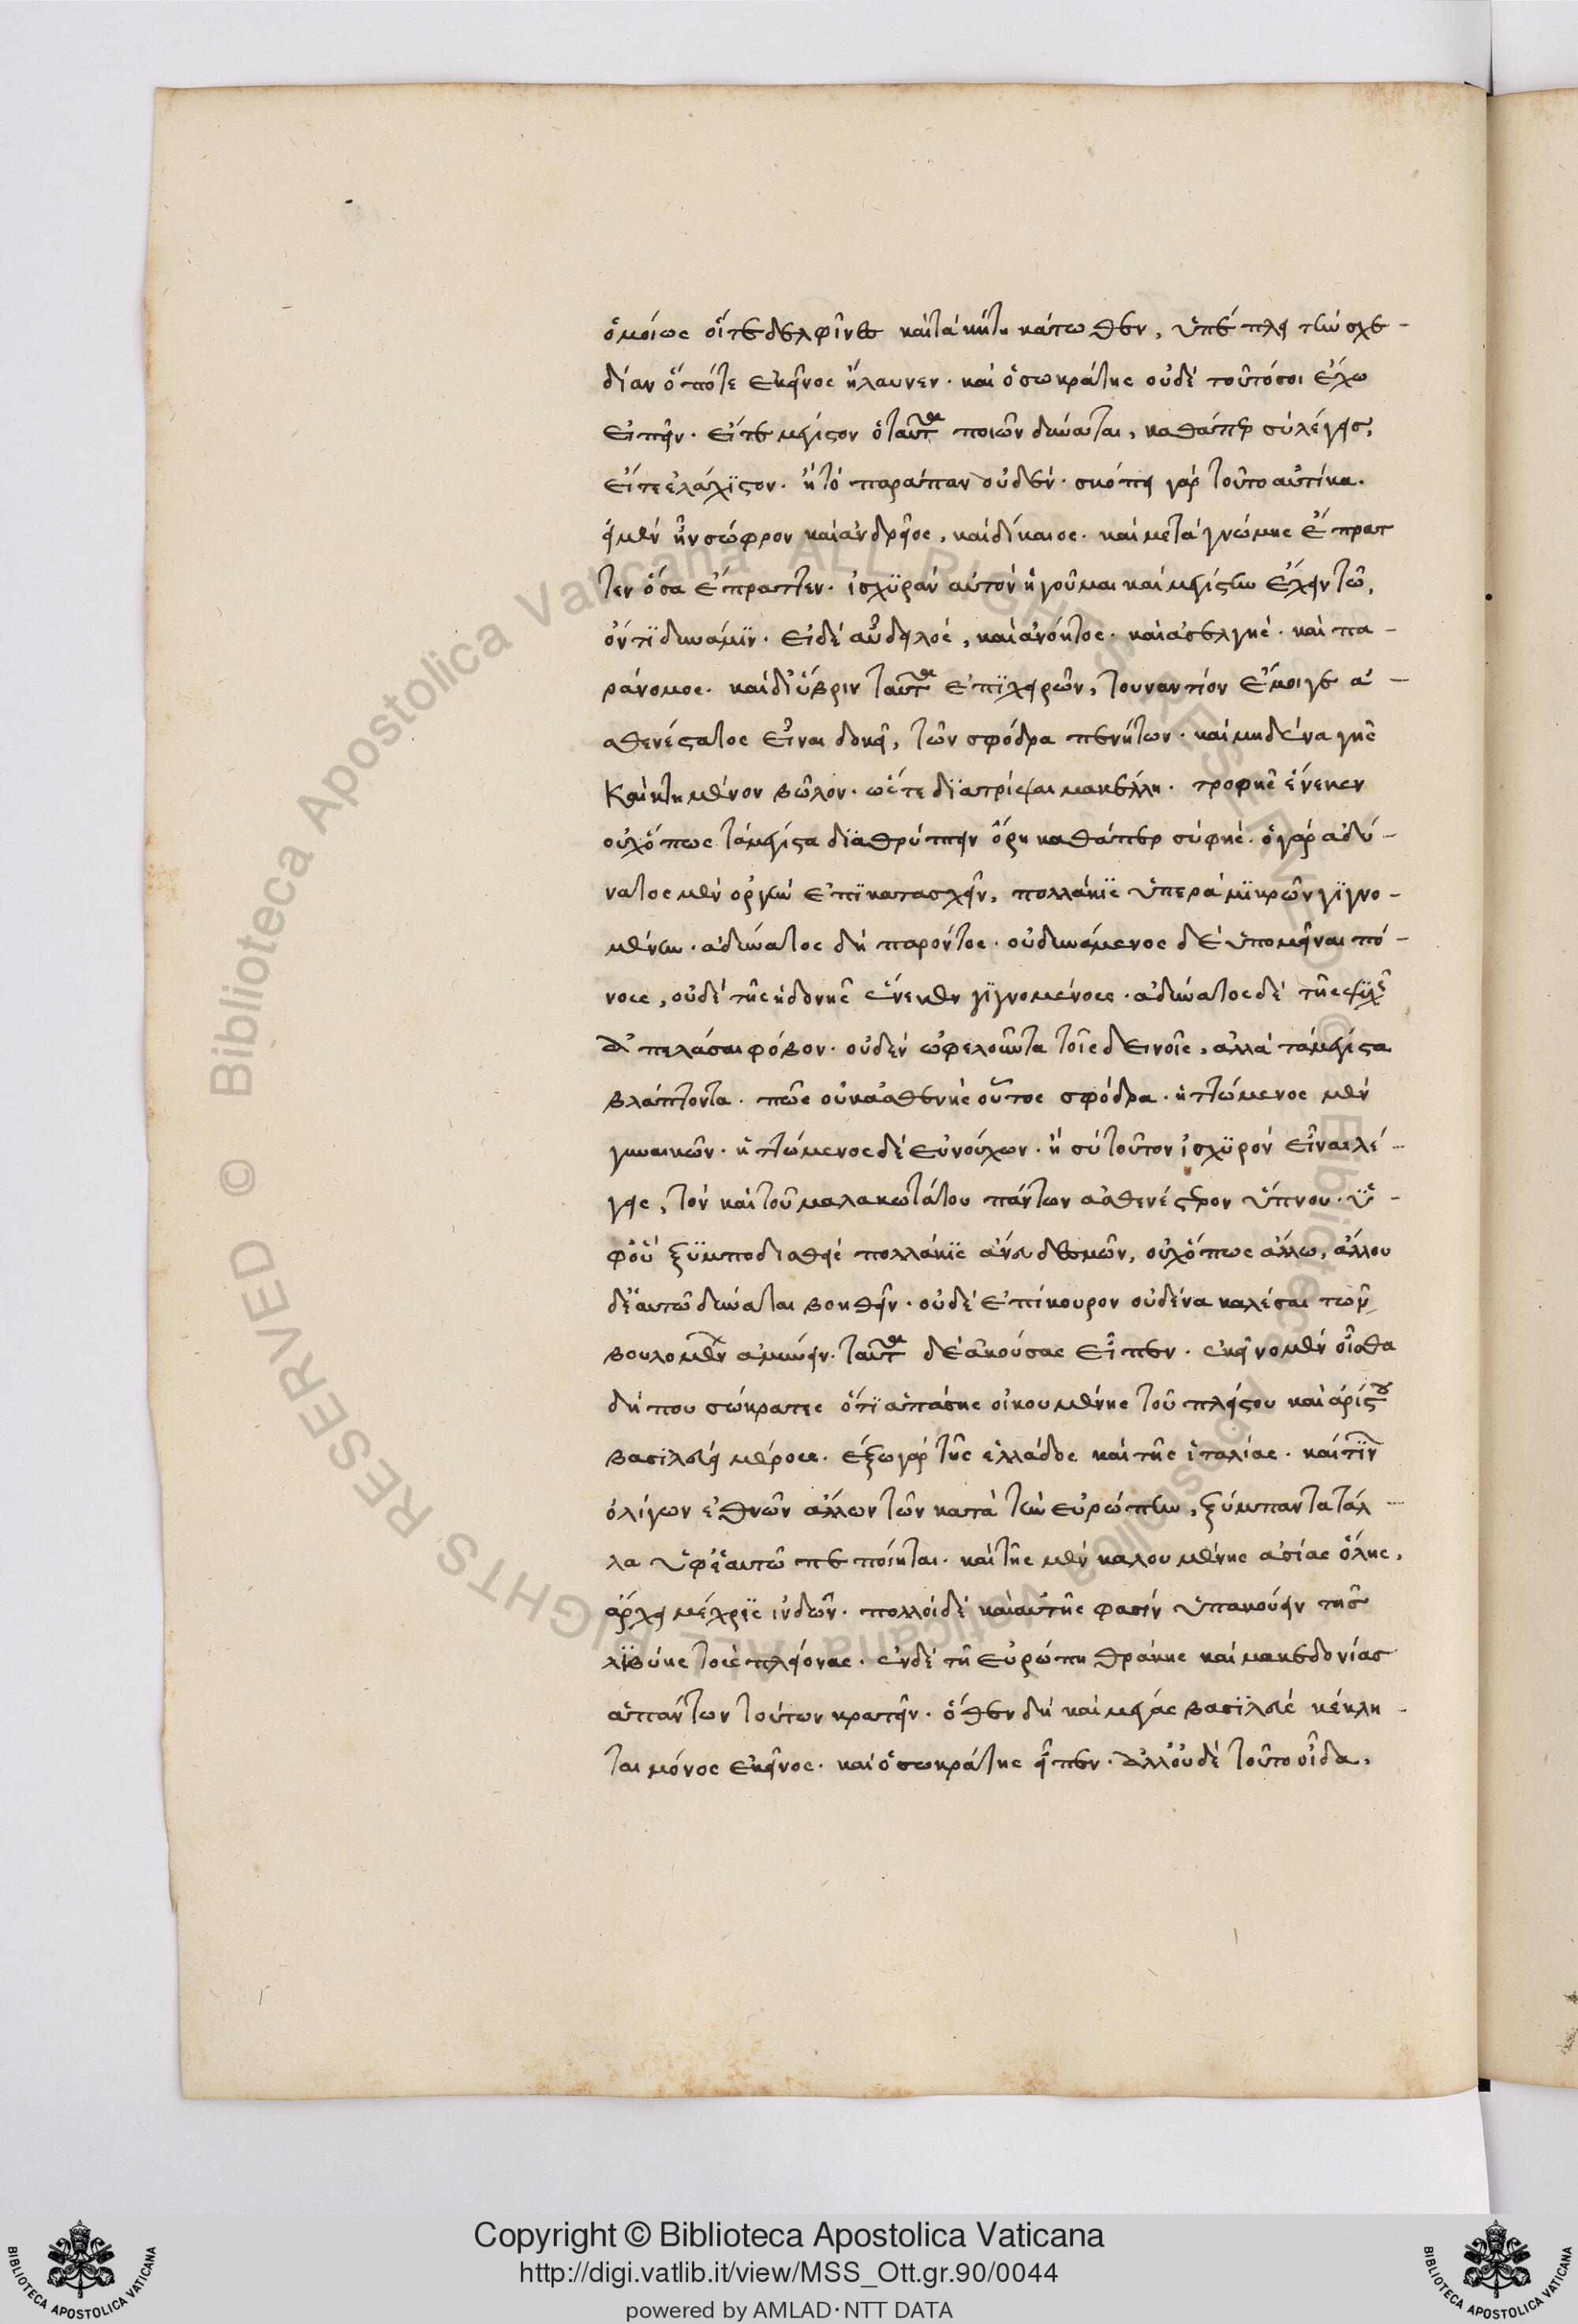 ὁμοίως οἵτε δελφῖνες καὶ τὰ κήτη κάτωθεν, ὑπέπλει τὴν σχε-
δίαν ὁπότε ἐκεῖνος ἤλαυνεν. καὶ ὁ σωκράτης οὐδὲ τοῦτό σοι ἔχω
εἰπεῖν. εἴτε μέγιστον ὁ ταῦτα ποιῶν δύναται, καθάπερ σὺ λέγεις,
εἴτε ἐλάχϊστον. ἢ τὸ παράπαν οὐδέν. σκόπει γὰρ τοῦτο αὐτίκα.
εἰ μὲν ἦν σώφρον καὶ ἀνδρεῖος, καὶ δίκαιος. καὶ μετὰ γνώμης ἔπρατ
τεν ὅσα ἔπραττεν. ἰσχϋρὰν αὐτὸν ἡγοῦμαι καὶ μεγίστην ἔχειν τῶ,
ὄντϊ δυνάμϊν. εἰ δὲ αὖ δειλὸς, καὶ ἀνόητος. καὶ ἀσελγὴς. καὶ πα-
ράνομος. καὶ δι' ὕβριν ταῦτα ἐπϊχειρῶν, τουναντίον ἔμοιγε ἀ-
σθενέστατος εἶναι δοκεῖ, τῶν σφόδρα πενήτων. καὶ μηδένα γῆς
κεκτημένον βῶλον. ὥστε δϊατρίψαι μακέλλη. τροφῆς ἕνεκεν
οὐχ' ὅπως τὰ μέγιστα δϊαθρύπτειν ὄρη καθάπερ σὺ φής. ὁ γὰρ ἀδύ-
νατος μὲν ὀργὴν ἐπϊκατασχεῖν, πολλάκϊς ὑπερὰ μϊκρῶν γϊγνο-
μένην. ἀδύνατος δὴ παρόντος. οὐ δυνάμενος δὲ ὑπομεῖναι πό-
νους, οὐδὲ τῆς ἡδονῆς ἕνεκεν γϊγνομένους. ἀδύνατος δὲ τῆς ψϋχῆς
ἀπελάσαι φόβον. οὐδὲν ὠφελοῦντα τοῖς δεινοῖς, ἀλλὰ τὰ μέγιστα
βλάπτοντα. πῶς οὐκ ἀσθενὴς οὗτος σφόδρα. ἡττώμενος μὲν
γυναικῶν. ἡττώμενος δὲ εὐνούχων. ἢ σὺ τοῦτον ἰσχϋρὸν εἶναι λέ-
γεις, τὸν καὶ τοῦ μαλακωτάτου πάντων ἀσθενέστερον ὕπνου. ὑ-
φ' οὗ ξϋμποδισθεὶς πολλάκϊς ἄνευ δεσμῶν, οὐχ' ὅπως ἄλλω, ἄλλου
δὲ ἑαυτῶ δύναται βοηθεῖν. οὐδὲ ἐπίκουρον οὐδένα καλέσαι τῶν
βουλομένων ἀμύνειν. ταῦτα δὲ ἀκούσας εἶπεν. ἐκεῖνο μὲν οἶσθα
δήπου σώκρατες ὅτϊ ἁπάσης οἰκουμένης τοῦ πλείστου καὶ ἀρίστου
βασιλεύει μέρους. ἔξω γὰρ τῆς ἑλλάδος καὶ τῆς ἰταλίας. καὶ τϊνων
ὀλίγων ἐθνῶν ἄλλων τῶν κατὰ τὴν εὐρώπην, ξύμπαντα τἄλ-
λα ὑφ' ἑαυτῶ πεποίηται. καὶ τῆς μὲν καλουμένης ἀσίας ὅλης,
ἄρχει μέχρϊς ἰνδῶν. πολλοὶ δὲ καὶ αὐτῆς φασὶν ὑπακούειν τῆς
λϊβύης τοὺς πλείονας. ἐν δὲ τῇ εὐρώπη θράκης καὶ μακεδονίας
ἁπάντων τούτων κρατεῖν. ὅθεν δὴ καὶ μέγας βασϊλεὺς κέκλη-
ται μόνος ἐκεῖνος. καὶ ὁ σωκράτης εἶπεν. ἀλλ' οὐδὲ τοῦτο οἶδα,
Copyright © Biblioteca Apostolica Vaticana
http://digi.vatlib.it/view/MSS_Ott.gr.90/0044
powered by AMLAD·NTT DATA